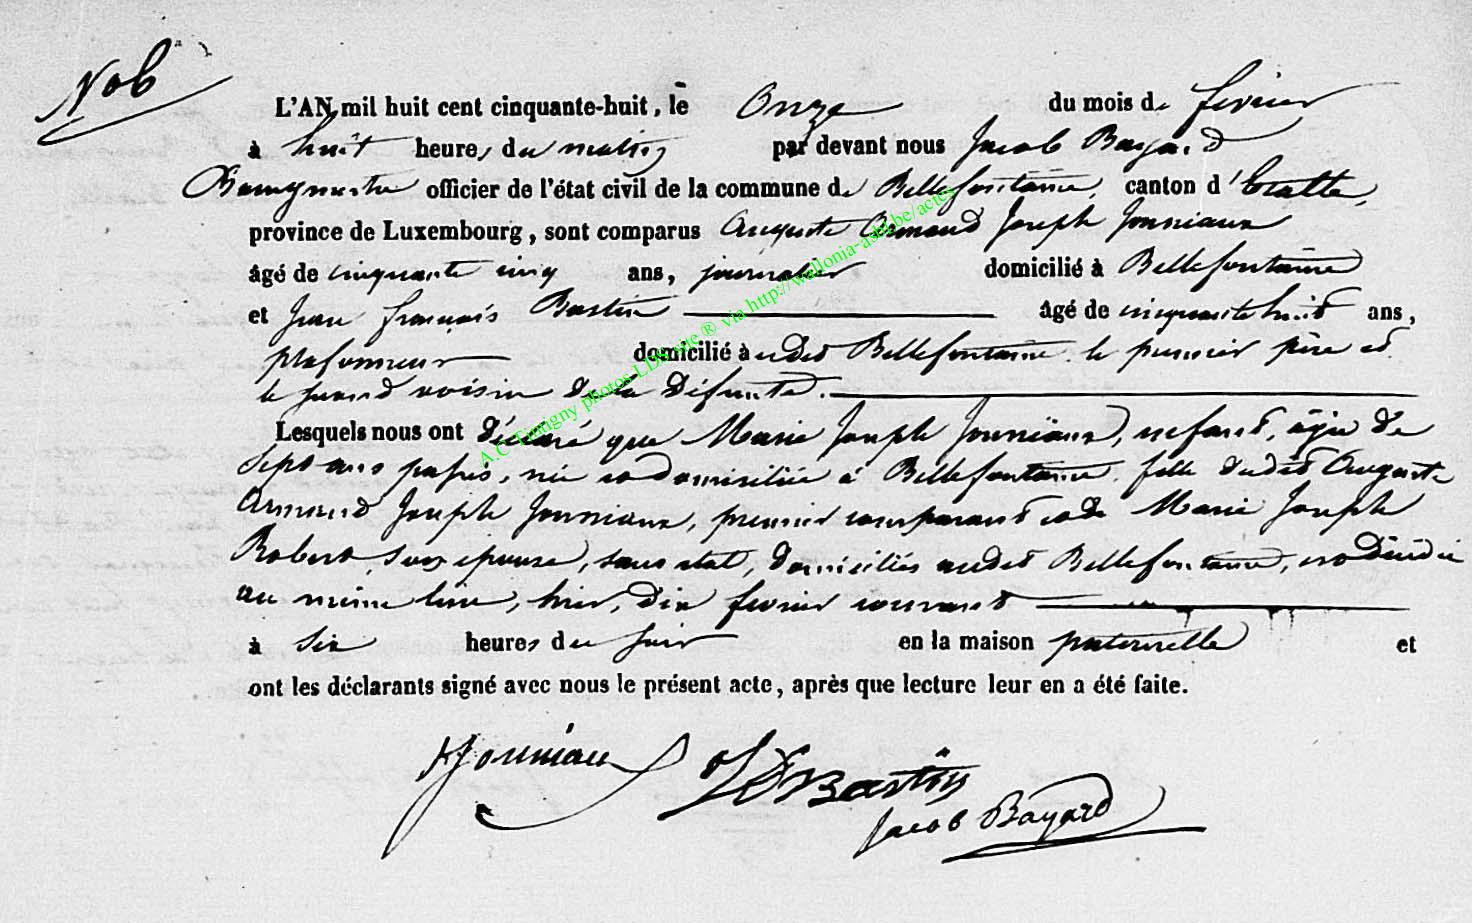 No 6
L'AN mil huit cent cinquante-huit, le Onze du mois de février
à huit heures du matin par devant nous Jacob Bayard
Bourgmestre officier de l'état civil de la commune de Bellefontaine, canton d'Etalle,
province de Luxembourg, sont comparus Auguste Armand Joseph Jonniaux
âgé de cinquante cinq ans, journalier domicilié à Bellefontaine
et Jean françois Bastin âgé de cinquante huit ans,
plafonneur domicilié à audit Bellefontaine le premier père et
le second voisin de la Défunte.
Lesquels nous ont déclaré que Marie Joseph Jonniaux, enfant, âgée de
Sept ans passés, née et domiciliée à Bellefontaine, fille dudit Auguste
Armand Joseph Jonniaux, premier comparant et de Marie Joseph
Robert, son épouse, sans état, domiciliés audit Bellefontaine, est décédée
au même lieu, hier, dix février courant
à six heures du soir en la maison paternelle et
ont les déclarants signé avec nous le présent acte, après que lecture leur en a été faite.
Jonniaux JF Bastin
Jacob Bayard
A.C Tintigny photos-LDS site ® via http://wallonia-asbl.be/actes